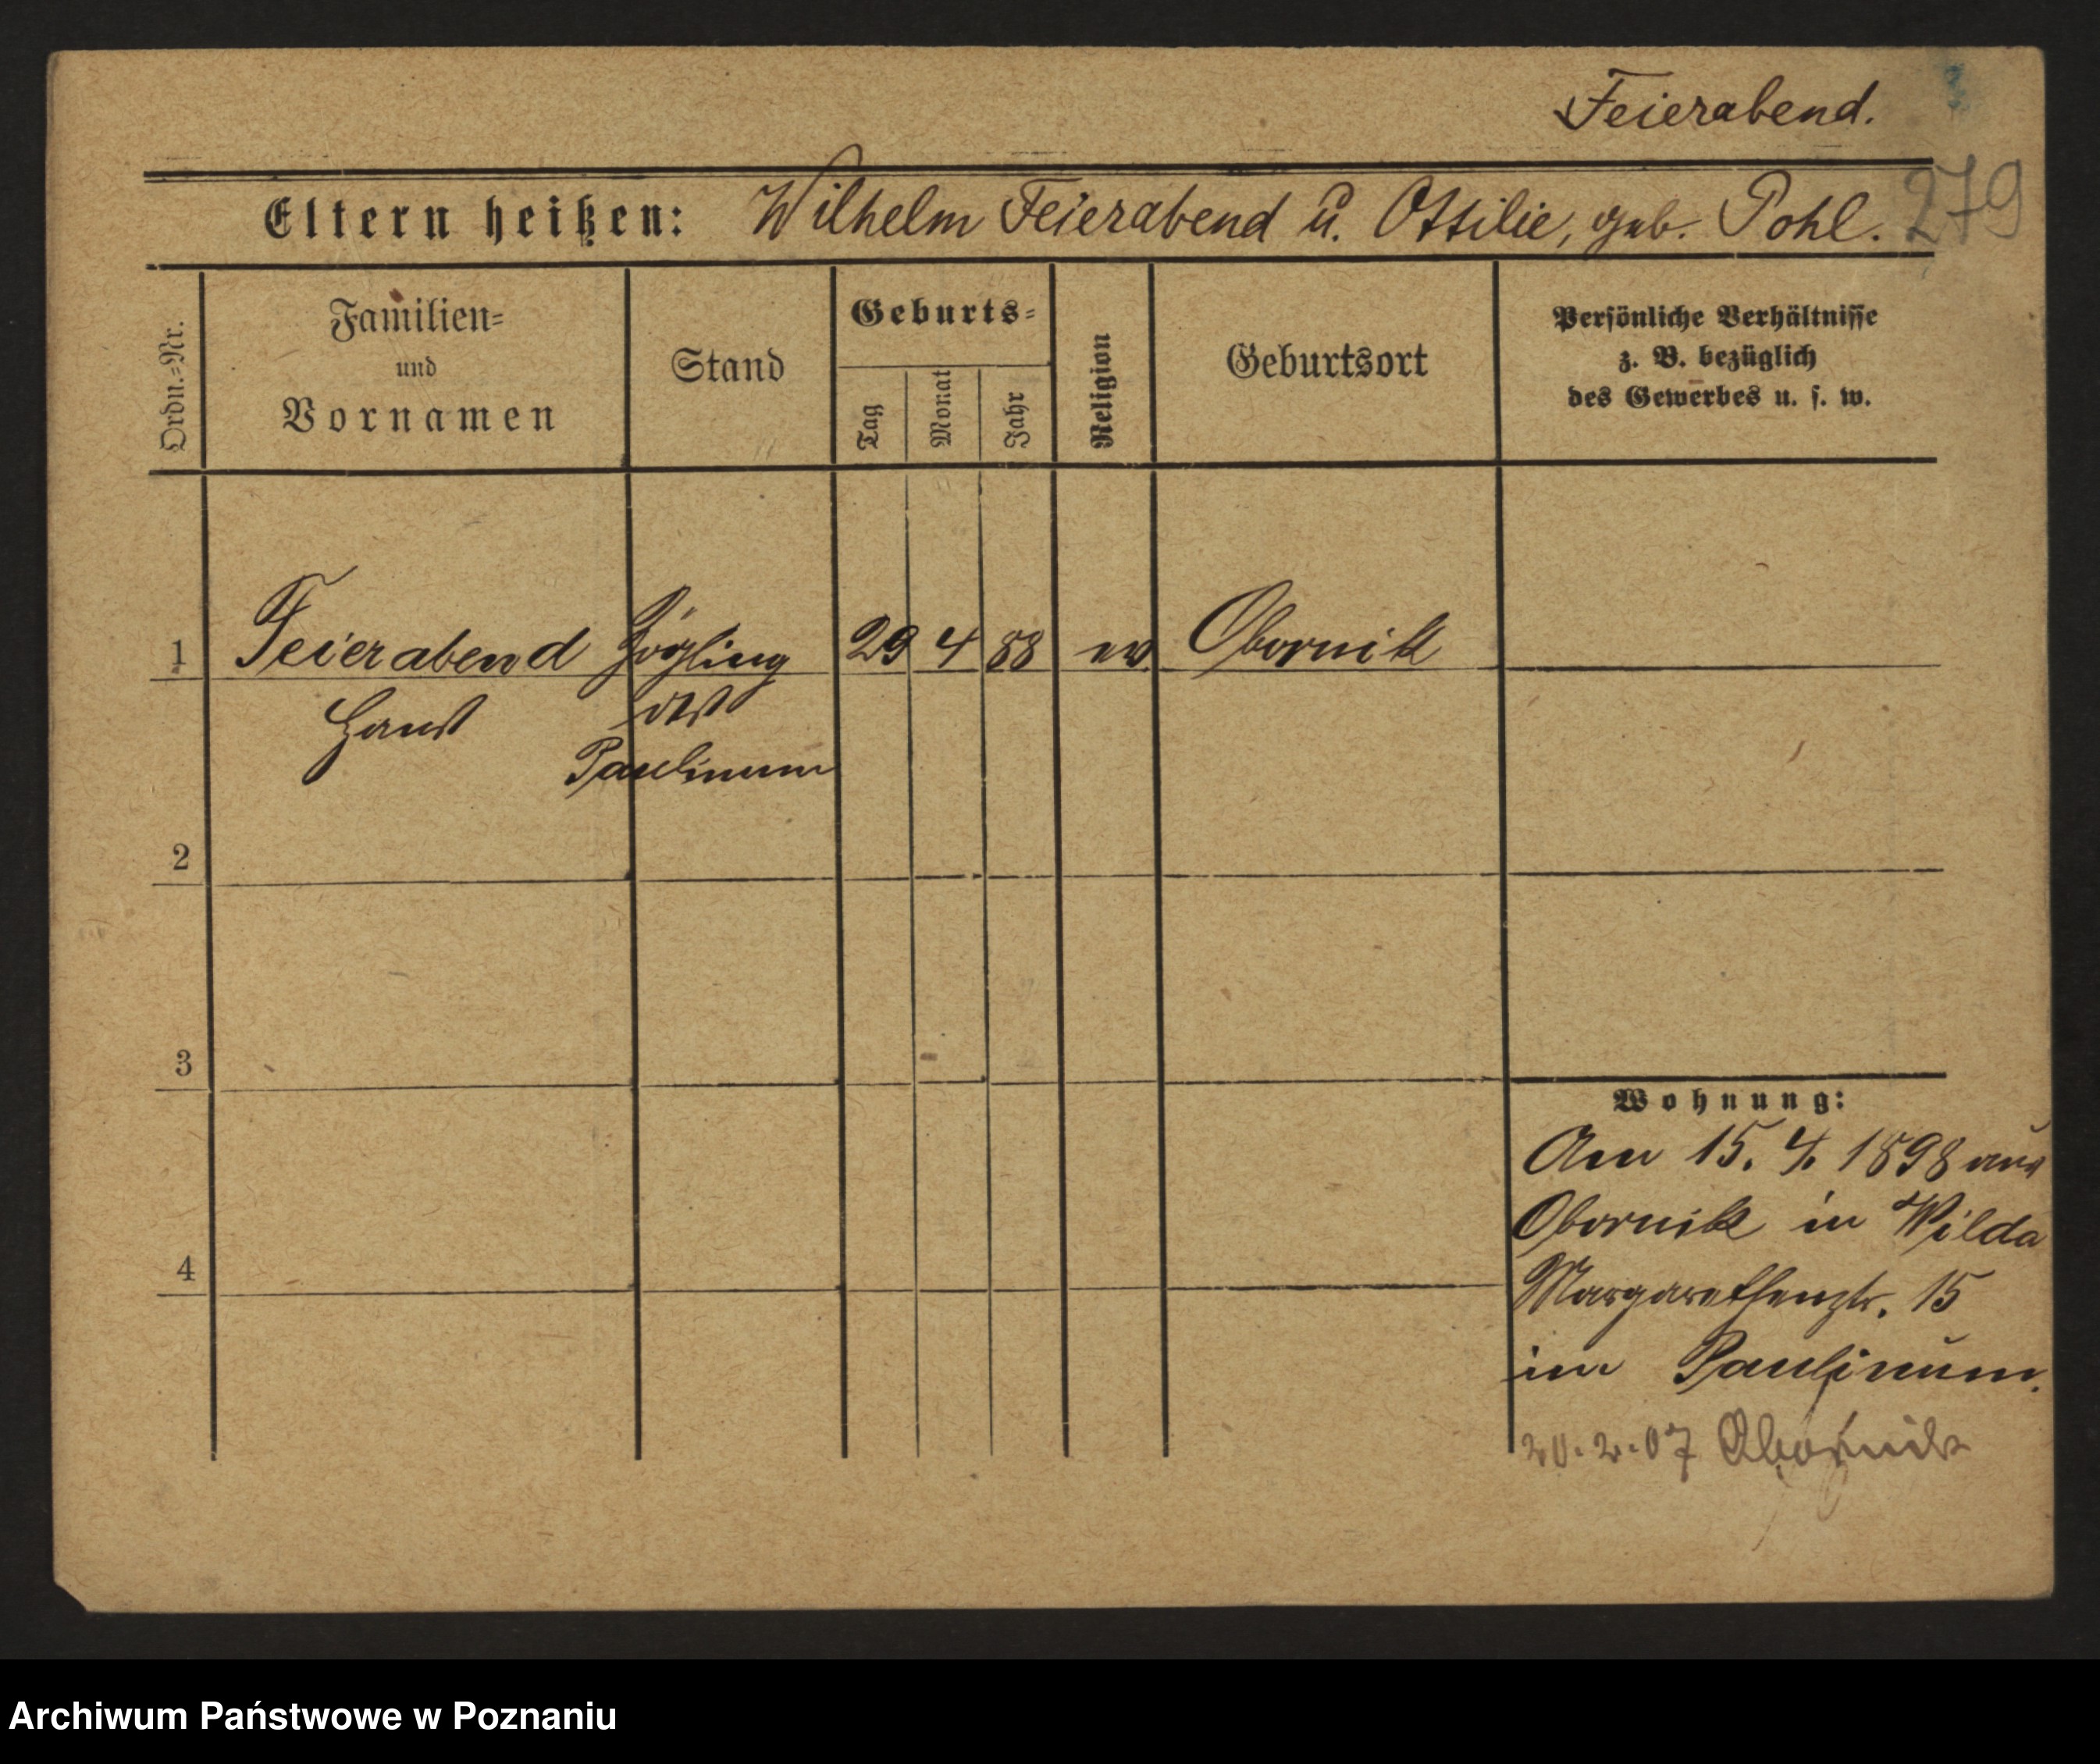 Feierabend.
279
Eltern heißen: Wilhelm Feierabend u. Ottilie, geb. Pohl.
Ordn.=Nr.
Familien=
und
Vornamen
Stand
Geburts=
Tag
Monat
Jahr
Religion
Geburtsort
Persönliche Verhältnisse
z. B. bezüglich
des Gewerbes u. s. w.
1 Feierabend Zögling 29 4 88 ev Obornik
Hans des
Paulinum
2
3
4
Wohnung:
Am 15. 4. 1898 aus
Obornik in Wilda
Margarethenstr. 15
im Paulinum.
20.2.07 Obornik
Archiwum Państwowe w Poznaniu